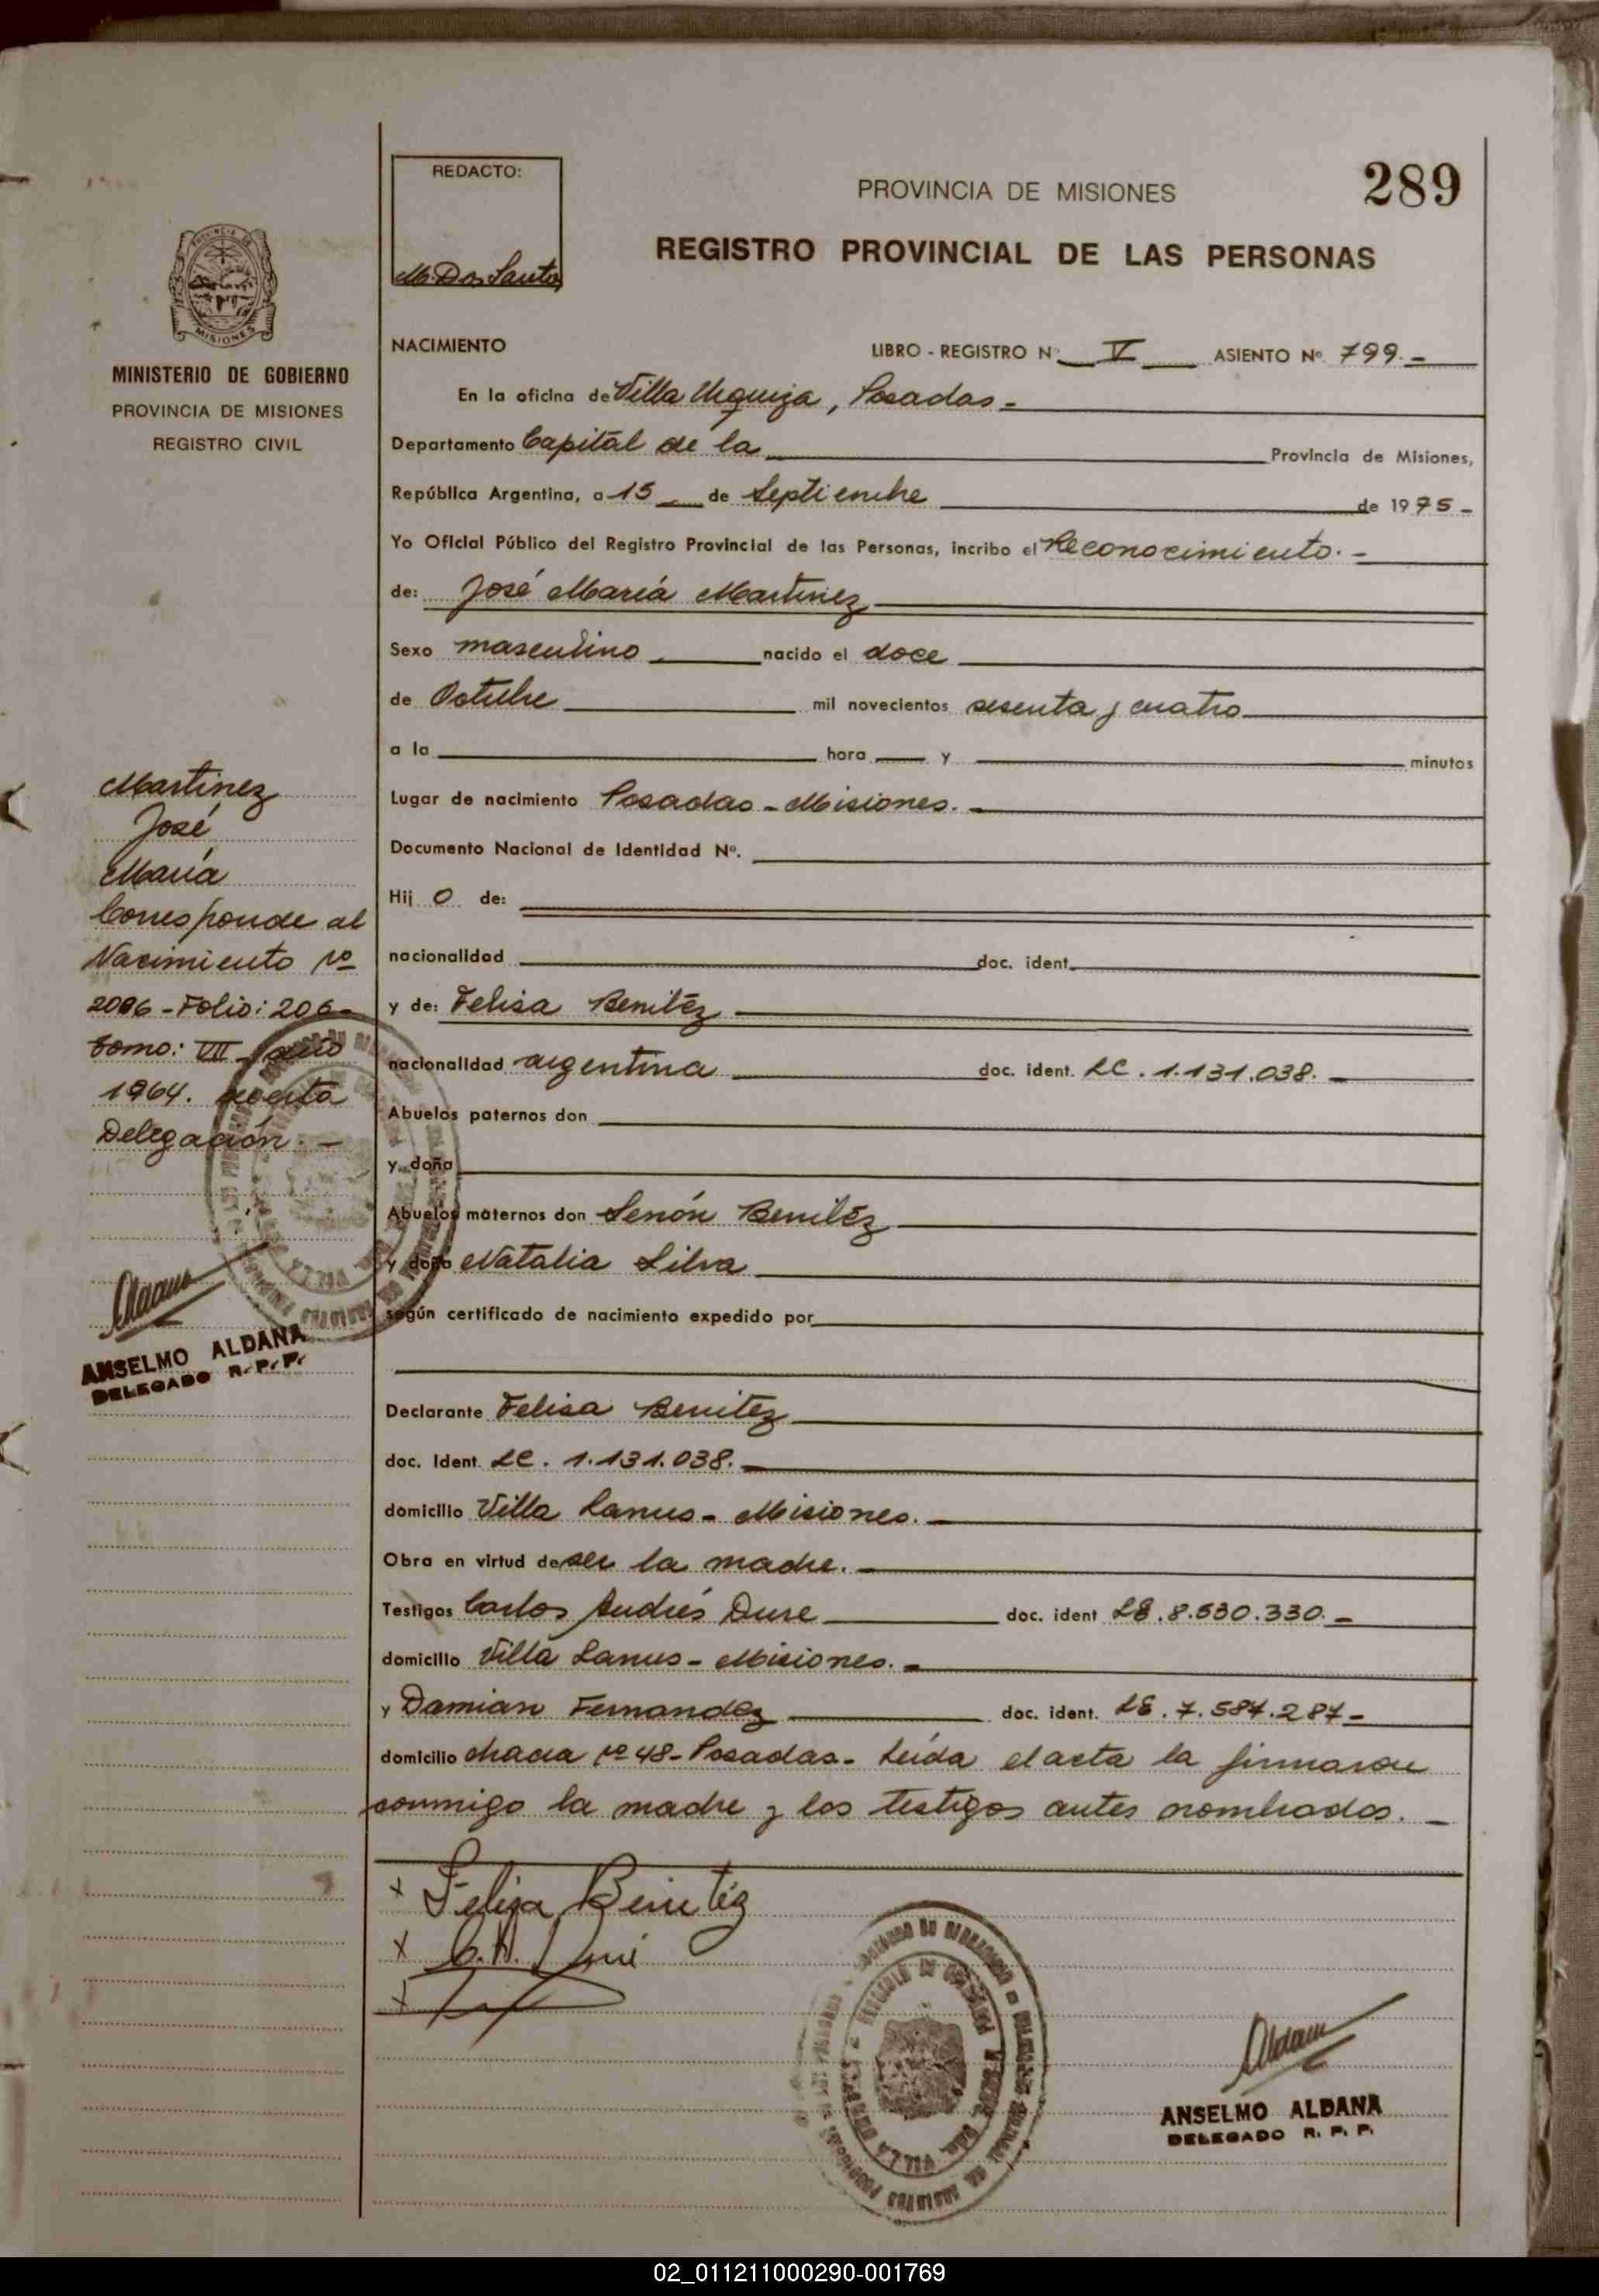 289
REDACTO:
M. Dos Santos
PROVINCIA DE MISIONES
REGISTRO PROVINCIAL DE LAS PERSONAS
PROVINCIA DE
MISIONES
MINISTERIO DE GOBIERNO
PROVINCIA DE MISIONES
REGISTRO CIVIL
NACIMIENTO LIBRO - REGISTRO Nº V ASIENTO Nº 799.-
En la oficina de Villa Urquiza, Posadas-
Departamento Capital de la Provincia de Misiones,
República Argentina, a 15 de Septiembre de 1975-
Yo Oficial Público del Registro Provincial de las Personas, incribo el Reconocimiento.-
de: José María Martinez
Sexo masculino nacido el doce
de Octubre mil novecientos sesenta y cuatro
a la hora y minutos
Lugar de nacimiento Posadas-Misiones.-
Documento Nacional de Identidad Nº.
Hij o de:
nacionalidad doc. ident.
y de: Felisa Benitéz
nacionalidad argentina doc. ident. LC. 1.131.038.-
Abuelos paternos don
y doña
Abuelos maternos don Senón Benitéz
y doña Natalia Silva
según certificado de nacimiento expedido por
Declarante Felisa Benitéz
doc. Ident. LC. 1.131.038.-
domicilio Villa Lanus- Misiones.-
Obra en virtud de ser la madre.-
Testigos Carlos Andrés Dure doc. ident LE. 8.530.330.-
domicilio Villa Lanus- Misiones.-
y Damian Fernandez doc. ident. LE. 7.584.284-
domicilio chacra nº 48- Posadas- Leída el acta la firmaron
conmigo la madre y los testigos antes nombrados.-
Martinez
José
María
Corresponde al
Nacimiento nº
2086 - Folio: 206-
tomo: VII - año
1964. de esta
Delegación.-
Aldana
ANSELMO ALDANA
DELEGADO R. P. P.
x Felisa Benitéz
x C.A. Duré
x
Aldana
ANSELMO ALDANA
DELEGADO R. P. P.
02_011211000290-001769